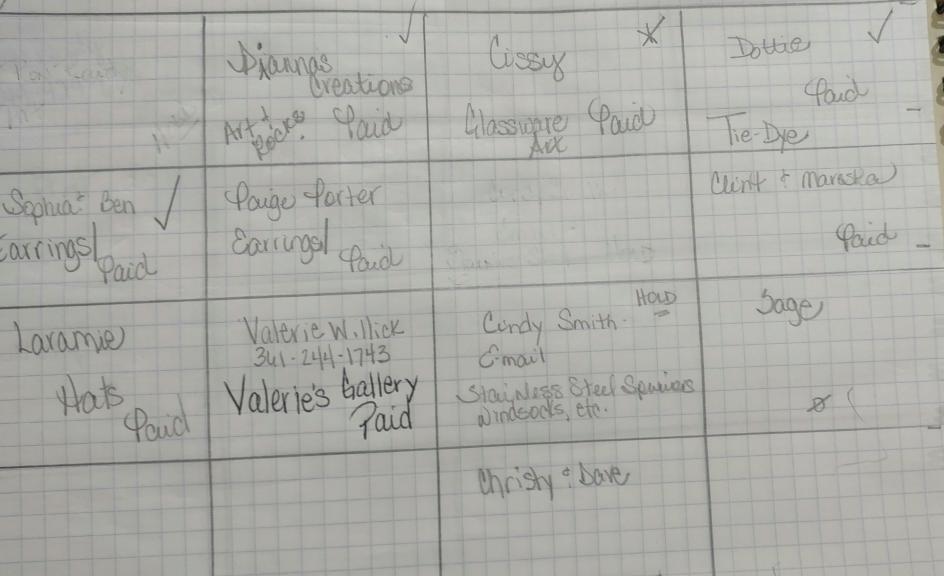 Diannas
Creations
Art +
Rocks.
Paid
Cissy
Glassware
Art
Paid
Dottie
Paid
Tie-Dye
Sophia + Ben
Earrings/
Paid
Paige Porter
Earrings/
Paid
Clint + Maraska
Paid
Laramie
Hats
Paid
Valerie W. Hick
361-244-1743
Valerie's Gallery
Paid
HOLD
Cindy Smith
E-mail
Stainless Steel Spinners
Windsocks, etc.
Sage
Christy + Dave